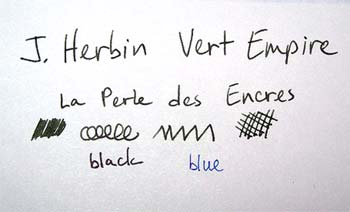 J. Herbin Vert Empire
La Perle des Encres
black blue